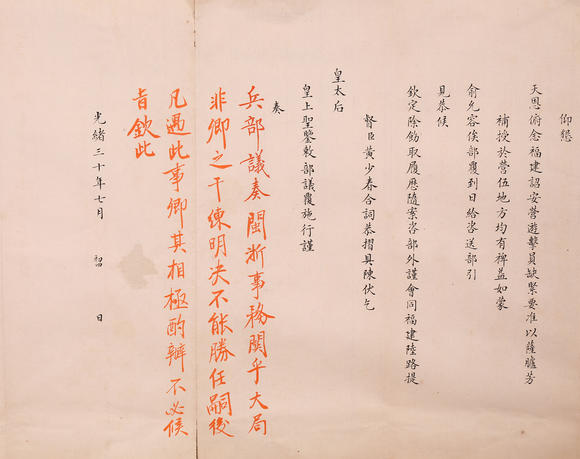 仰懇
天恩俯念福建詔安營遊擊員缺緊要准以薩臚芳
補授於營伍地方均有裨益如蒙
俞允容俟部覆到日給咨送部引
見恭候
欽定除飭取履歷隨案咨部外謹會同福建陸路提
督臣黃少春合詞恭摺具陳伏乞
皇太后
皇上聖鑒敕部議覆施行謹
奏
兵部議奏閩浙事務關乎大局
非卿之干練明決不能勝任嗣後
凡遇此事卿其相極酌辦不必候
旨欽此
光緒三十年七月 初 日